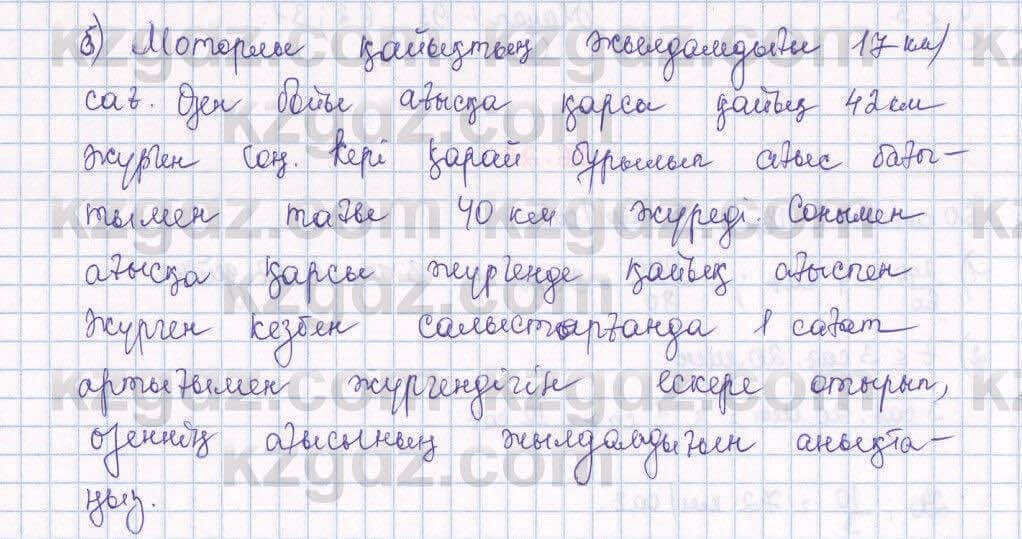 б) Моторлы қайықтың жылдамдығы 17 км/
сағ. Өзен бойы ағысқа қарсы қайық 42 км
жүрген соң. Кері қарай бұрылып ағыс бағы-
тымен тағы 40 км жүреді. Сонымен
ағысқа қарсы жүргенде қайық ағыспен
жүрген кезбен салыстырғанда 1 сағат
артығымен жүргендігін ескере отырып,
өзеннің ағысының жылдамдығын анықта-
ңыз.
kzgdz.com